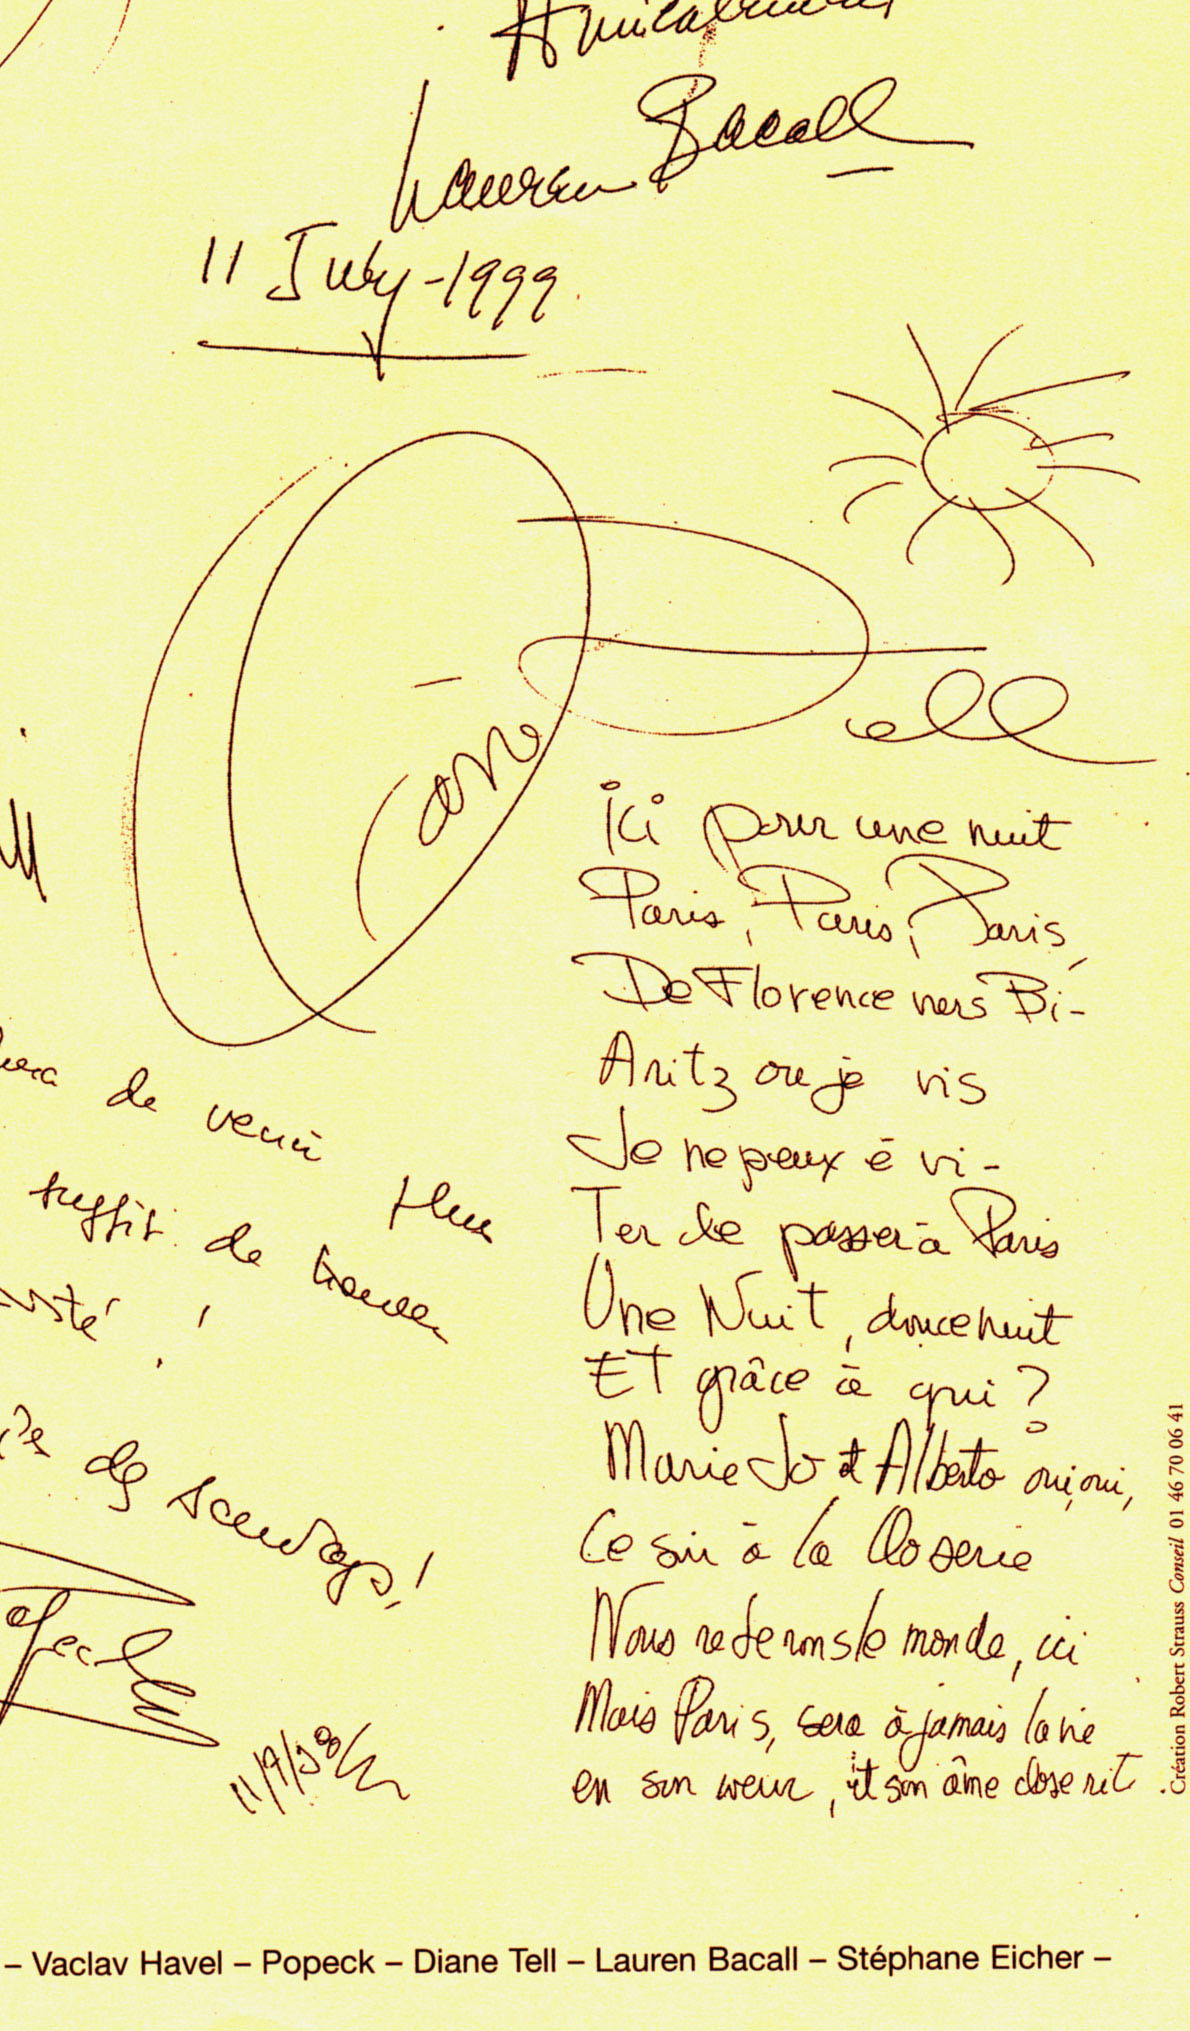 Amicalement
Lauren Bacall
11 July-1999
Tell
ici pour une nuit
Paris, Paris, Paris,
De Florence vers Bi-
Aritz ou je vis
Je ne peux évi-
Ter de passer à Paris
Une Nuit, douce nuit
ET grâce à qui?
Marie Jo et Alberto oui, oui,
Ce soir à la Closerie
Nous referons le monde, ici
Mais Paris, sera à jamais la vie
en son coeur, et son âme close rit
de venir
suffit de
de
11/7/98
Création Robert Strauss Conseil 01 46 70 06 41
– Vaclav Havel – Popeck – Diane Tell – Lauren Bacall – Stéphane Eicher –